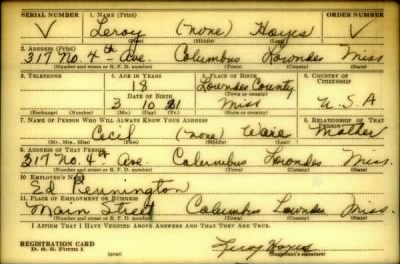 SERIAL NUMBER 1. NAME (Print) ORDER NUMBER
Leroy (none) Hayes
(First) (Middle) (Last)
2. ADDRESS (Print)
317 No. 4th Ave. Columbus Lowndes Miss
(Number and street or R. F. D. number) (Town) (County) (State)
3. TELEPHONE 4. AGE IN YEARS 5. PLACE OF BIRTH 6. COUNTRY OF CITIZENSHIP
18 Lowndes County
DATE OF BIRTH (Town or county)
3 10 21 Miss U.S.A
(Exchange) (Number) (Mo.) (Day) (Yr.) (State or country)
7. NAME OF PERSON WHO WILL ALWAYS KNOW YOUR ADDRESS 8. RELATIONSHIP OF THAT PERSON
Cecil (none) Ware Mother
(Mr., Mrs., Miss) (First) (Middle) (Last)
9. ADDRESS OF THAT PERSON
317 No. 4th Ave. Columbus Lowndes Miss.
(Number and street or R. F. D. number) (Town) (County) (State)
10. EMPLOYER'S NAME
Ed Pennington
11. PLACE OF EMPLOYMENT OR BUSINESS
Main Street Columbus Lowndes Miss.
(Number and street or R. F. D. number) (Town) (County) (State)
I AFFIRM THAT I HAVE VERIFIED ABOVE ANSWERS AND THAT THEY ARE TRUE.
REGISTRATION CARD
D. S. S. Form 1 (over) Leroy Hayes
(Registrant's signature)